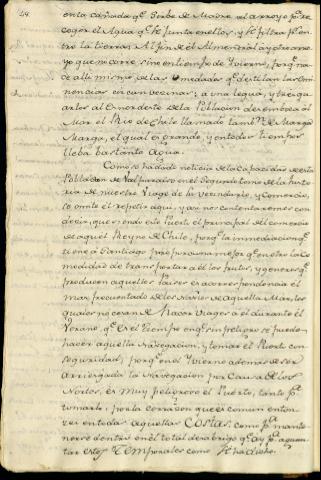 en la cañada qe sirbe de Madre al arroyo pa re
coger el Agua qe se junta en ellos y se filtra pr en
tre la tierra. Al fin de el Almendral ay otro arro
yo que no corre sino en tiempo de Yvierno, porqe na
ce alli mismo de las umedades qe destilan las emi
nencias circunvecinas; a una legua, y tres qu
artos al Ernordeste de la Poblacion desemboca al
Mar el Rio de Chile llamado tambn de Marga
Marga, el qual es grande, y en todos tiempos
lleba bastante Agua.
Como se ha dado noticia de la Capacidad de esta
Poblacion de Valparaiso en el Segundo tomo de la histo
ria de nuestro Viage de la Vecindario, y Comercio,
se omite el repetir aqui, y asi nos contentaremos con
decir, que siendo este Puerto el principal del comercio
de aquel Reyno de Chile, porqe la inmediacion qe
tiene à Santiago pues proxima no es qe en otro la Co
medidad de transportar à el los frutos, y generos qe
producen aquellos Paises es a correspondencia el
mas frecuentado de los Navios de aquella Mar, los
quales no cesan de hacer viages à el durante el
Verano, qe es el tiempo en qe sin peligro se puede
hacer aquella Navegacion, y tomar el Puerto con
seguridad, porqe en el Yvierno ademas de ser
arriesgada la Navegacion por Causa de los
Nortes, es muy peligroso el Puerto, tanto pa
tomarlo, por la cerrazon que es comun enton
ces en todas aquellas Costas, como pa mante
nerse dentro en el total desabrigo qe ay pa aguan
tar estos Temporales como se ha dicho.